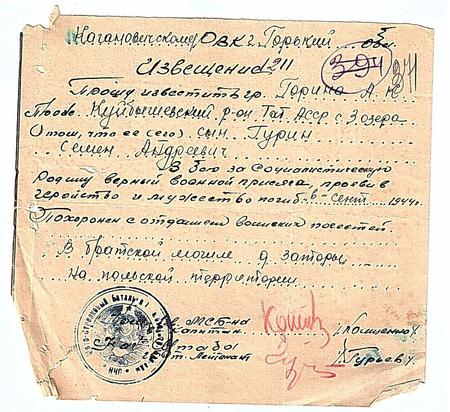 Кагановическому ОВК г. Горький обл.
Извещение 211
394
Прошу известить гр. Горина А.
Куйбышевский р-он Тат. Асср с. 3 озера
О том, что ее (его) сын Гурин
Семен Андреевич
В бою за социалистическую
Родину верный военной присяге, проявив
геройство и мужество погиб в сент. 1944г.
Похоронен с отданием воинских почестей
В братской могиле д. Заторы
На польской территории
к. МСБ-на
Капитан
Штаба
ст. Лейтенант
/Гурьев/